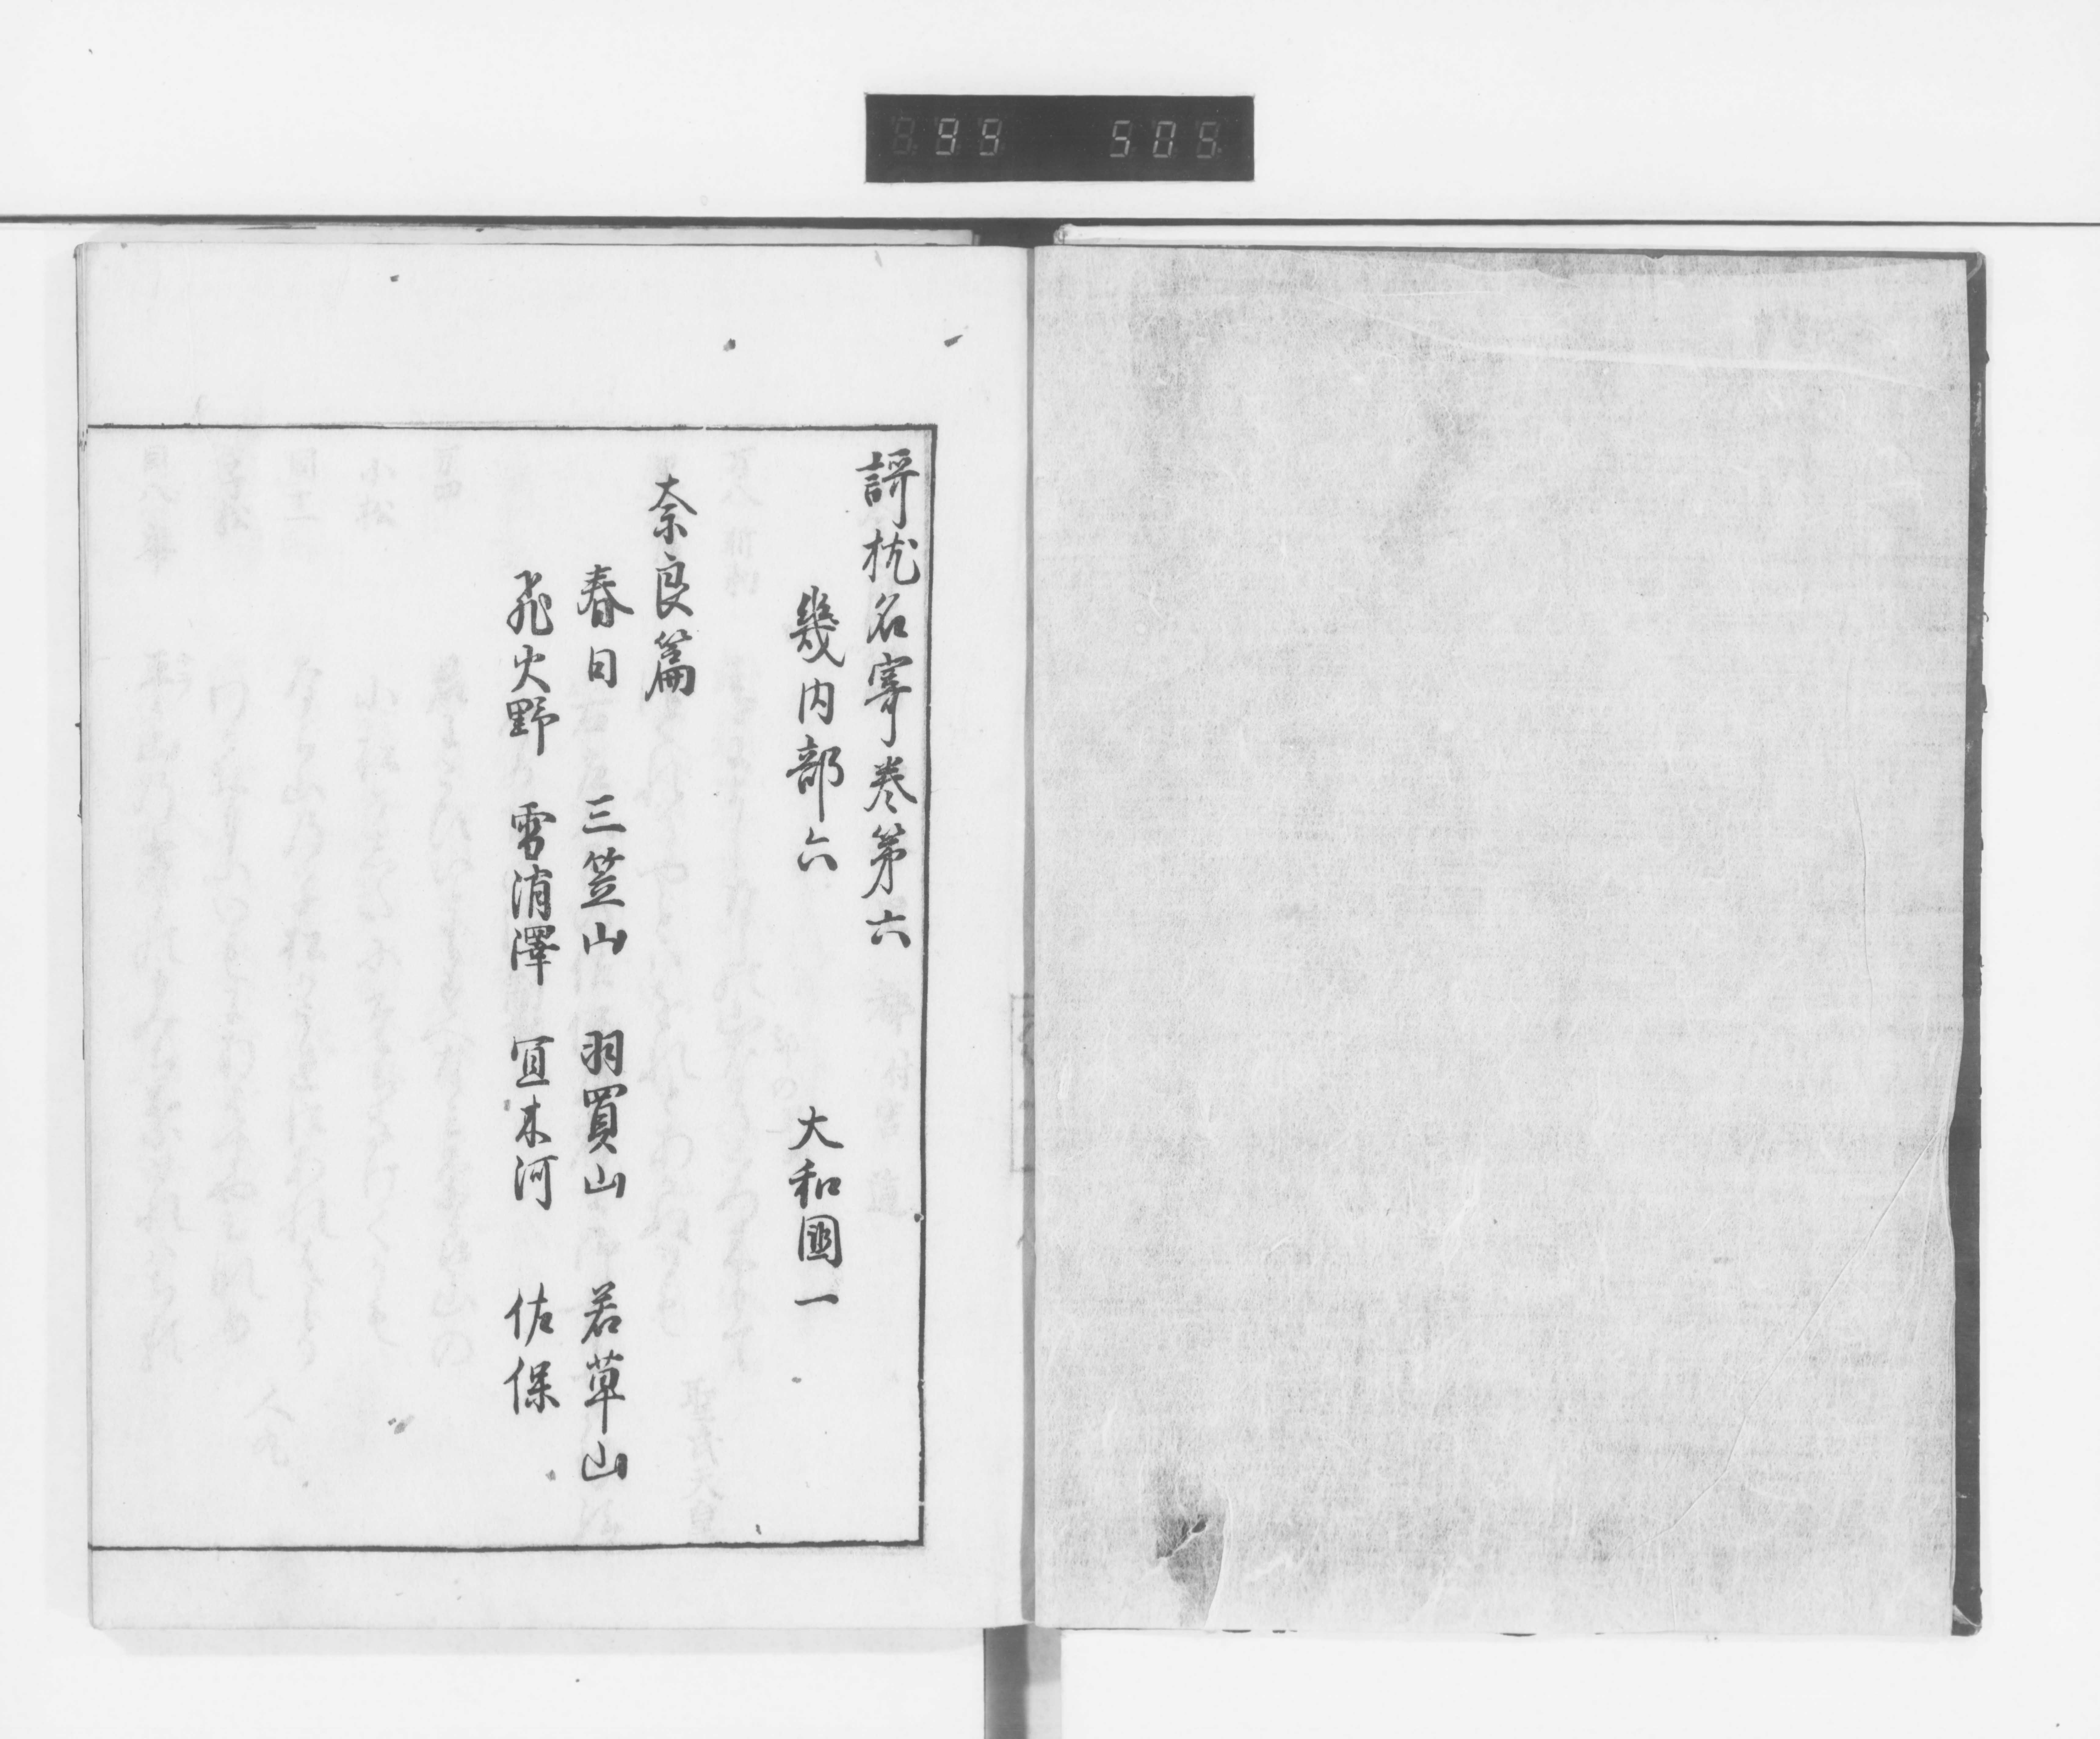 謌枕名寄巻第六
幾内部六　大和國一
奈良篇
春日　三笠山　羽買山　若草山
飛火野　雪消澤　宜木河　佐保
99 505